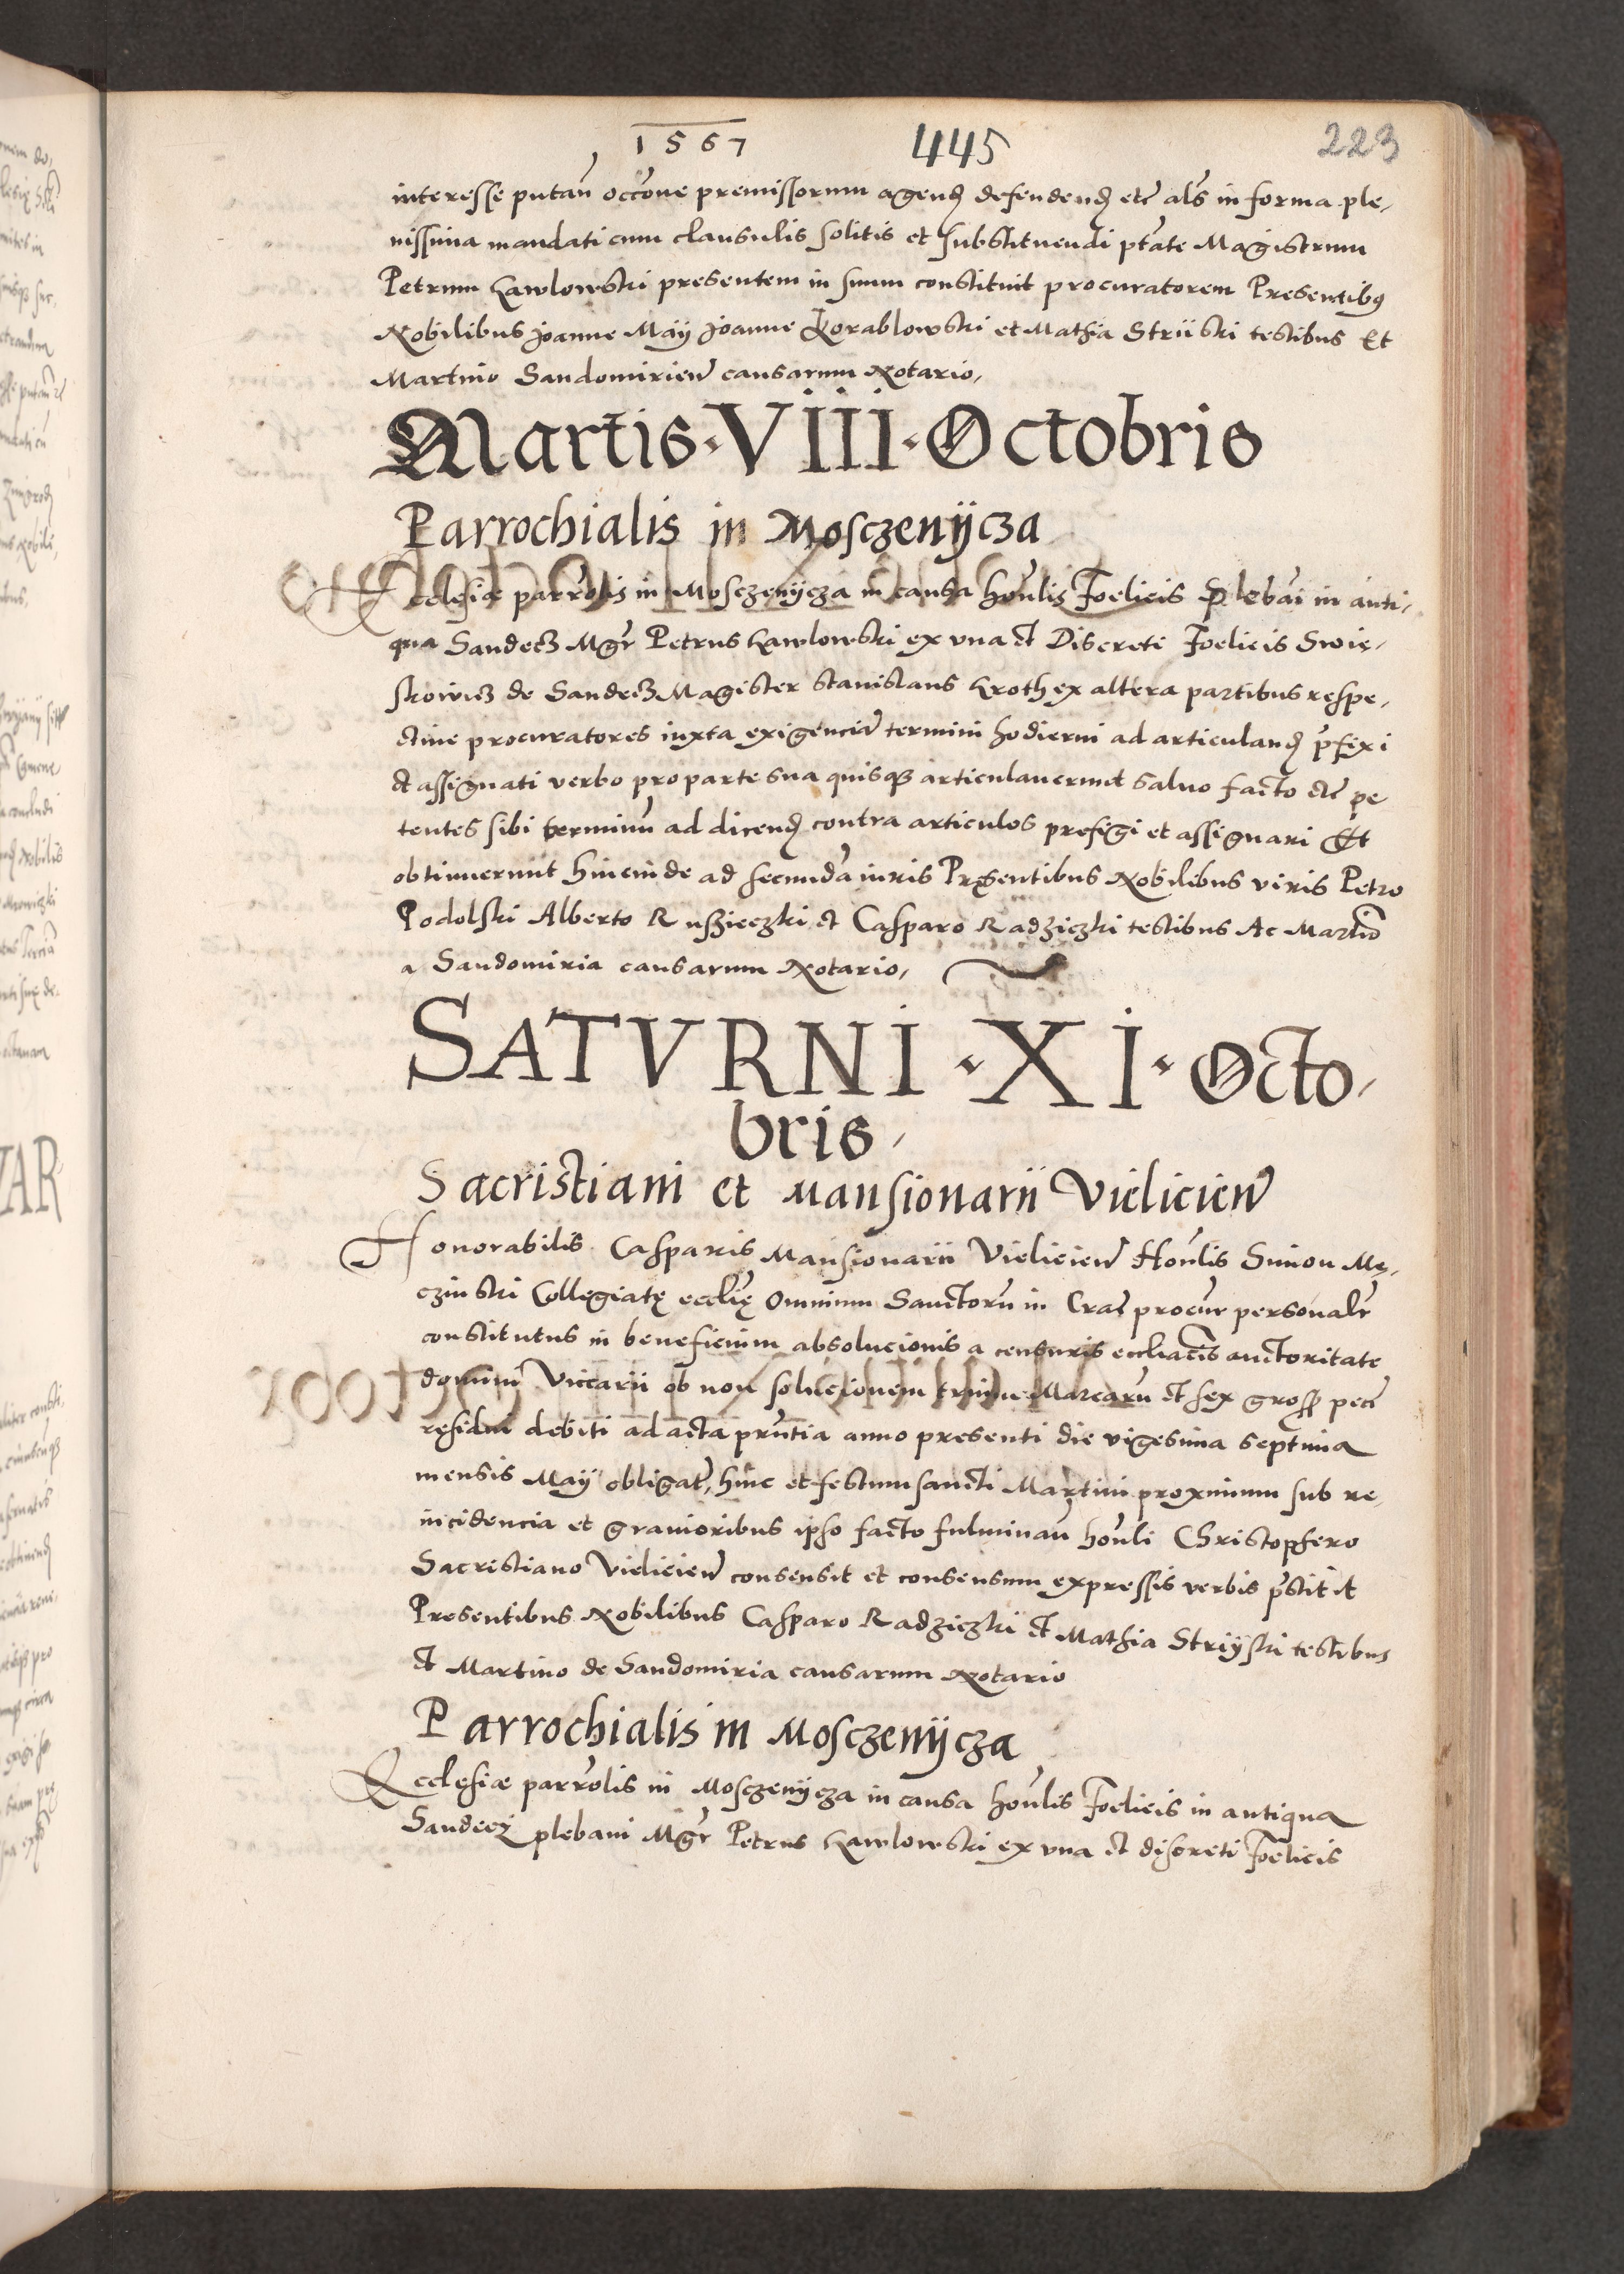 1567 445 223
interesse putań occõne premissorum agend defendend etc als in forma ple,
nissima mandati cum clausulis solitis et substituendi ptãte Magistrum
Petrum Kawlowski presentem in suum constituit procuratorem Presentibus
Nobilibus Joanne Maÿ Joanne Korablowski et Mathia Strÿski testibus Et
Martino Sandomirień causarum Notario,
Martis · VIII · Octobris
Parrochialis in Mosczenÿcza
Ecclesiæ parrõlis in Mosczenÿcza in causa Honlis Foelicis Plebãi in anti,
qua Sandecz Mgr Petrus Kawlowski ex vna et Discreti Foelicis Swię,
skowicz de Sandecz Magister Stanislaus Kroth ex altera partibus respe,
ctiue procuratores iuxta exigenciã termini hodierni ad articuland pfixi
et assignati verbo pro parte sua quisqз articulauerunt saluo facto etc pe
tentes sibi terminũ ad dicend contra articulos prefigi et assignari Et
obtinuerunt hincinde ad secundã iuris Pręsentibus Nobilibus viris Petro
Podolski Alberto Ruszieczki et Casparo Radziczki testibus Ac Martiõ
a Sandomiria causarum Notario,
SATVRNI · XI · Octo,
bris,
Sacristiani et Mansionarii Vielicień
Honorabilis Casparis Mansionarii Vielicień Honlis Simon Mę,
czinski Collegiatę ecclię Omnium Sanctorũ in Crac procur personalr
constitutus in beneficium absolucionis a censuris eccliacis auctoritate
domini Viccarii ob non solucionem trium Marcarũ et sex gross pecc
residui debiti ad acta pñtia anno presenti die vigesima septima
mensis Maÿ obligat, hinc et festum sancti Martini proximum sub re,
incidencia et grauioribus ipso facto fulminań honli Christophero
Sacristiano Vielicień consensit et consensum expressis verbis pstitit
Presentibus Nobilibus Casparo Radziczki et Mathia Strÿski testibus
et Martino de Sandomiria causarum Notario
Parrochialis in Mosczenÿcza
Ecclesiæ parrõlis in Mosczenÿcza in causa honlis Foelicis in antiqua
Sandecz plebani Mgr Petrus Kawlowski ex vna et discreti Foelicis